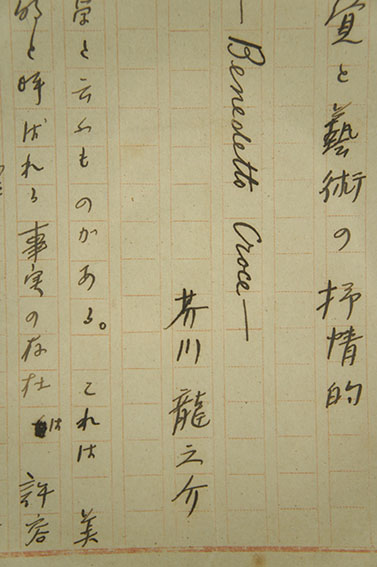 覚と藝術の抒情的
— Benedetto Croce —
芥川龍之介
学と云ふものがある。これは美
と呼ばれる事実の存在は許容